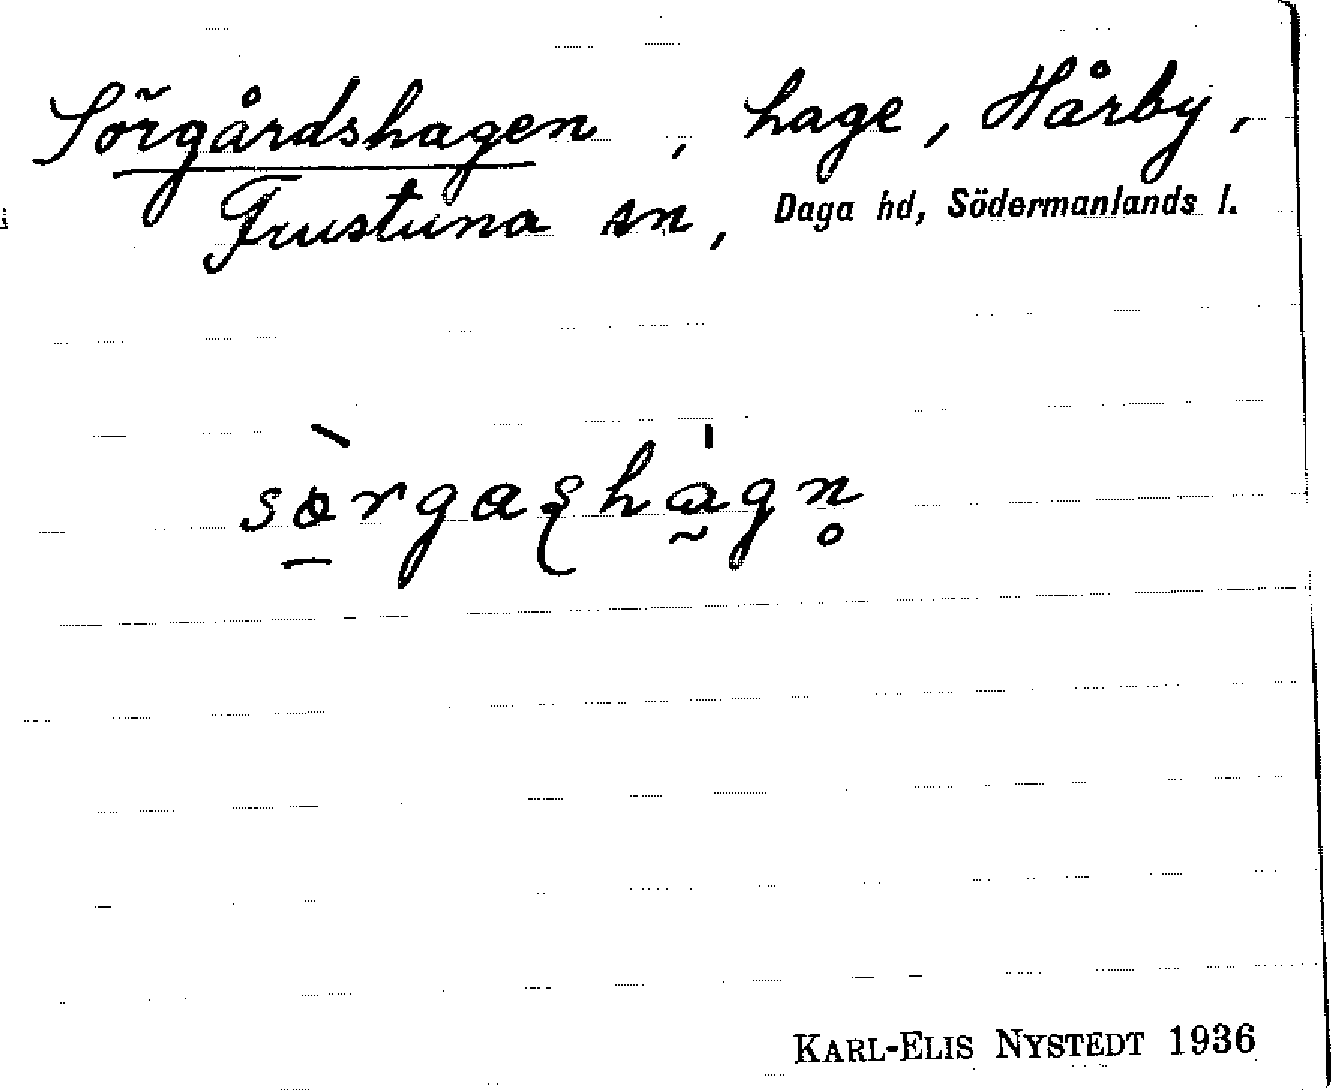 Sörgårdshagen, hage, Hårby,
Frustuna sn, Daga hd, Södermanlands l.
sö̀rgaʂhàgn̥
KARL-ELIS NYSTEDT 1936